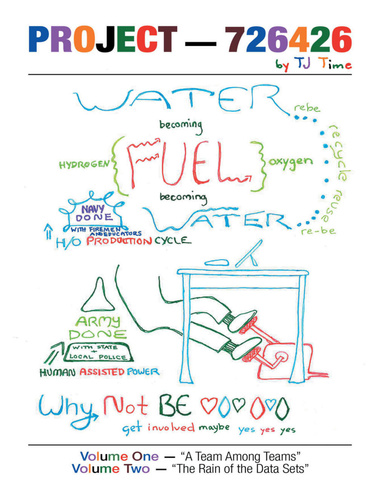 PROJECT — 726426
by TJ Time
WATER rebe
becoming
recycle reuse
HYDROGEN { FUEL } oxygen
becoming
NAVY
DONE
WITH FOREMEN
AND EDUCATORS
WATER re-be
H/O PRODUCTION CYCLE
ARMY
DONE
WITH STATE +
LOCAL POLICE
HUMAN ASSISTED POWER
Why Not BE
get involved maybe yes yes yes
Volume One — “A Team Among Teams”
Volume Two — “The Rain of the Data Sets”